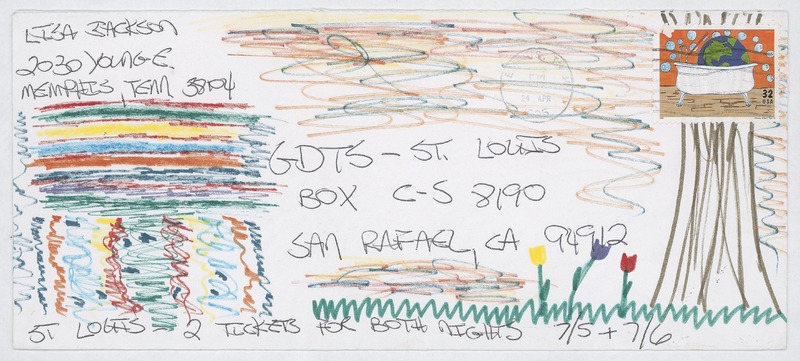 LISA JACKSON
2030 YOUNG E.
MEMPHIS, TENN 38104
32
USA
GDTS - ST. LOUIS
BOX C-S 8190
SAN RAFAEL, CA 94912
ST LOUIS - 2 TICKETS FOR BOTH NIGHTS 7/5 + 7/6